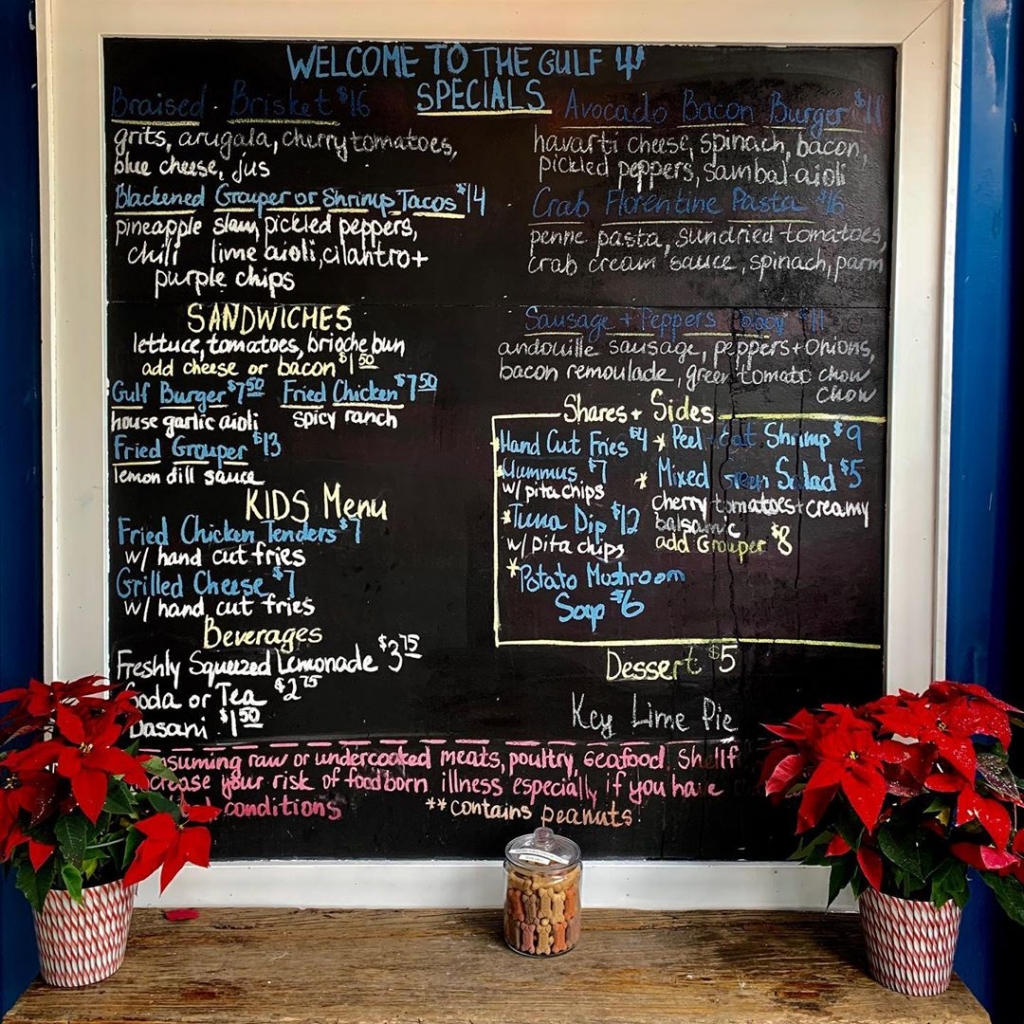 WELCOME TO THE GULF
SPECIALS
Braised Brisket $16
grits, arugala, cherry tomatoes,
blue cheese, jus
Blackened Grouper or Shrimp Tacos $14
pineapple slaw, pickled peppers,
chili lime aioli, cilantro +
purple chips
Avocado Bacon Burger $11
havarti cheese, spinach, bacon,
pickled peppers, sambal aioli
Crab Florentine Pasta $16
penne pasta, sundried tomatoes,
crab cream sauce, spinach, parm
Sausage + Peppers $11
andouille sausage, peppers + onions,
bacon remoulade, green tomato chow
chow
SANDWICHES
lettuce, tomatoes, brioche bun
add cheese or bacon $1 50
Gulf Burger $7 50 Fried Chicken $7 50
house garlic aioli spicy ranch
Fried Grouper $13
lemon dill sauce
KIDS Menu
Fried Chicken Tenders $7
w/ hand cut fries
Grilled Cheese $7
w/ hand cut fries
Beverages
Freshly Squeezed Lemonade $3 75
Soda or Tea $2 75
Dasani $1 50
Shares + Sides
*Hand Cut Fries $4
*Hummus $7
w/ pita chips
*Tuna Dip $12
w/ pita chips
*Potato Mushroom
Soup $6
*Peel + Eat Shrimp $9
*Mixed Green Salad $5
cherry tomatoes + creamy
balsamic
add Grouper $8
Dessert $5
Key Lime Pie
suming raw or undercooked meats, poultry, seafood, shellf
crease your risk of foodborn illness especially if you have
conditions **contains peanuts